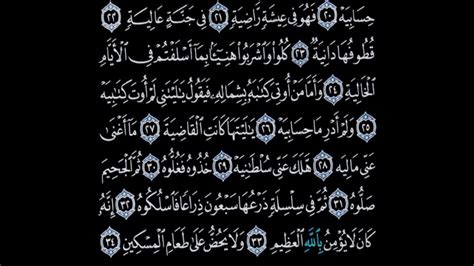 حِسَابِيَهْ ٢٠ فَهُوَ فِي عِيشَةٍ رَّاضِيَةٍ ٢١ فِي جَنَّةٍ عَالِيَةٍ ٢٢
قُطُوفُهَا دَانِيَةٌ ٢٣ كُلُوا۟ وَٱشْرَبُوا۟ هَنِيٓـًٔۢا بِمَآ أَسْلَفْتُمْ فِي ٱلْأَيَّامِ
ٱلْخَالِيَةِ ٢٤ وَأَمَّا مَنْ أُوتِيَ كِتَٰبَهُۥ بِشِمَالِهِۦ فَيَقُولُ يَٰلَيْتَنِي لَمْ أُوتَ كِتَٰبِيَهْ
٢٥ وَلَمْ أَدْرِ مَا حِسَابِيَهْ ٢٦ يَٰلَيْتَهَا كَانَتِ ٱلْقَاضِيَةَ ٢٧ مَآ أَغْنَىٰ
عَنِّي مَالِيَهْ ٢٨ هَلَكَ عَنِّي سُلْطَٰنِيَهْ ٢٩ خُذُوهُ فَغُلُّوهُ ٣٠ ثُمَّ ٱلْجَحِيمَ
صَلُّوهُ ٣١ ثُمَّ فِي سِلْسِلَةٍ ذَرْعُهَا سَبْعُونَ ذِرَاعًا فَٱسْلُكُوهُ ٣٢ إِنَّهُۥ
كَانَ لَا يُؤْمِنُ بِٱللَّهِ ٱلْعَظِيمِ ٣٣ وَلَا يَحُضُّ عَلَىٰ طَعَامِ ٱلْمِسْكِينِ ٣٤